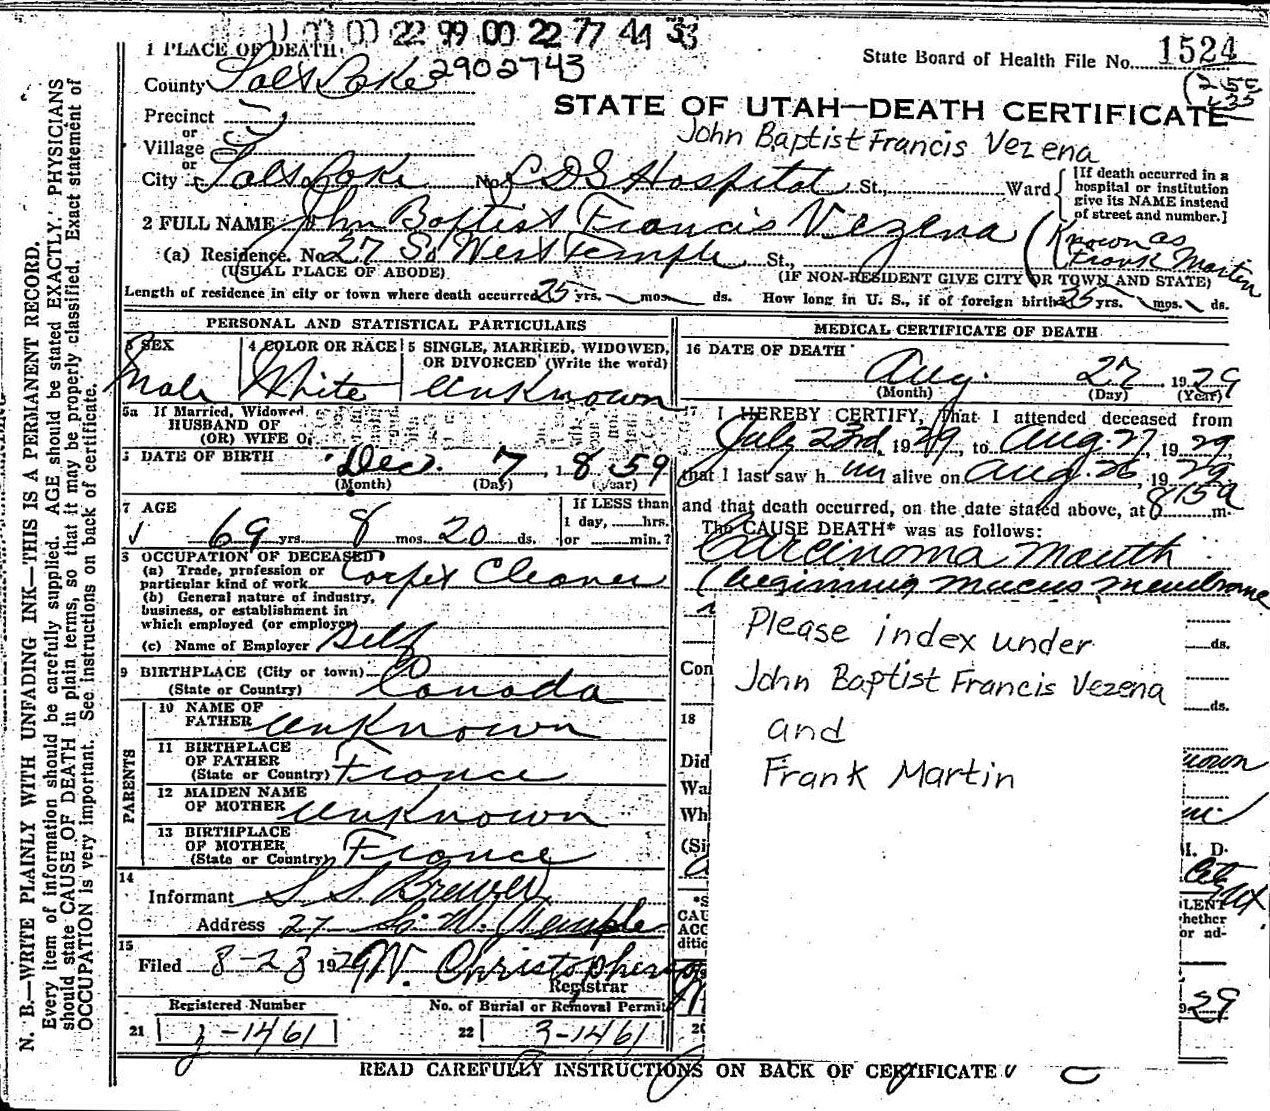 00 00 22 99 00 22 77 44 33
1 PLACE OF DEATH
2902743
State Board of Health File No. 1524
County Salt Lake
STATE OF UTAH—DEATH CERTIFICATE
Precinct
or
Village
or
John Baptist Francis Vezena
City Salt Lake No. LDS Hospital St., Ward
[If death occurred in a
hospital or institution
give its NAME instead
of street and number.]
2 FULL NAME John Baptist Francis Vezena (Known as
Frank Martin
(a) Residence. No. 27 So West Temple St.,
(USUAL PLACE OF ABODE) (IF NON-RESIDENT GIVE CITY OR TOWN AND STATE)
Length of residence in city or town where death occurred 35 yrs. mos. ds. How long in U. S., if of foreign birth 35 yrs. mos. ds.
PERSONAL AND STATISTICAL PARTICULARS
3 SEX
Male
4 COLOR OR RACE
White
5 SINGLE, MARRIED, WIDOWED,
OR DIVORCED (Write the word)
Unknown
5a If Married, Widowed
HUSBAND OF
(OR) WIFE OF
DATE OF BIRTH Dec. 7, 1859
(Month) (Day) (Year)
7 AGE
69 yrs 8 mos. 20 ds.
If LESS than
1 day, hrs.
or min.?
8 OCCUPATION OF DECEASED
(a) Trade, profession or
particular kind of work Carpet Cleaner
(b) General nature of industry,
business, or establishment in
which employed (or employer)
(c) Name of Employer Self
9 BIRTHPLACE (City or town)
(State or Country) Canada
PARENTS
10 NAME OF
FATHER Unknown
11 BIRTHPLACE
OF FATHER
(State or Country) France
12 MAIDEN NAME
OF MOTHER Unknown
13 BIRTHPLACE
OF MOTHER
(State or Country) France
14
Informant S. S. Brewer
Address 27 So. W. Temple
15
Filed 8-28 1929 W. Christopherson
Registrar
Registered Number No. of Burial or Removal Permit
21 3-1461 22 3-1461
MEDICAL CERTIFICATE OF DEATH
16 DATE OF DEATH
Aug. 27, 1929
(Month) (Day) (Year)
17 I HEREBY CERTIFY, that I attended deceased from
July 23rd, 1929, to Aug. 27, 1929,
that I last saw him alive on Aug 26, 1929
and that death occurred, on the date stated above, at 815a m.
The CAUSE DEATH* was as follows:
Carcinoma Mouth
(beginning mucus membrane
Please index under
John Baptist Francis Vezena
and
Frank Martin
ds.
Con
ds.
18
Did
Wa
Wh
(Si
M. D.
City
*S
CAU
ACC
ditic
whether
or ad-
29
READ CAREFULLY INSTRUCTIONS ON BACK OF CERTIFICATE
N. B.—WRITE PLAINLY WITH UNFADING INK—THIS IS A PERMANENT RECORD.
Every item of information should be carefully supplied. AGE should be stated EXACTLY. PHYSICIANS
should state CAUSE OF DEATH in plain terms, so that it may be properly classified. Exact statement of
OCCUPATION is very important. See instructions on back of certificate.